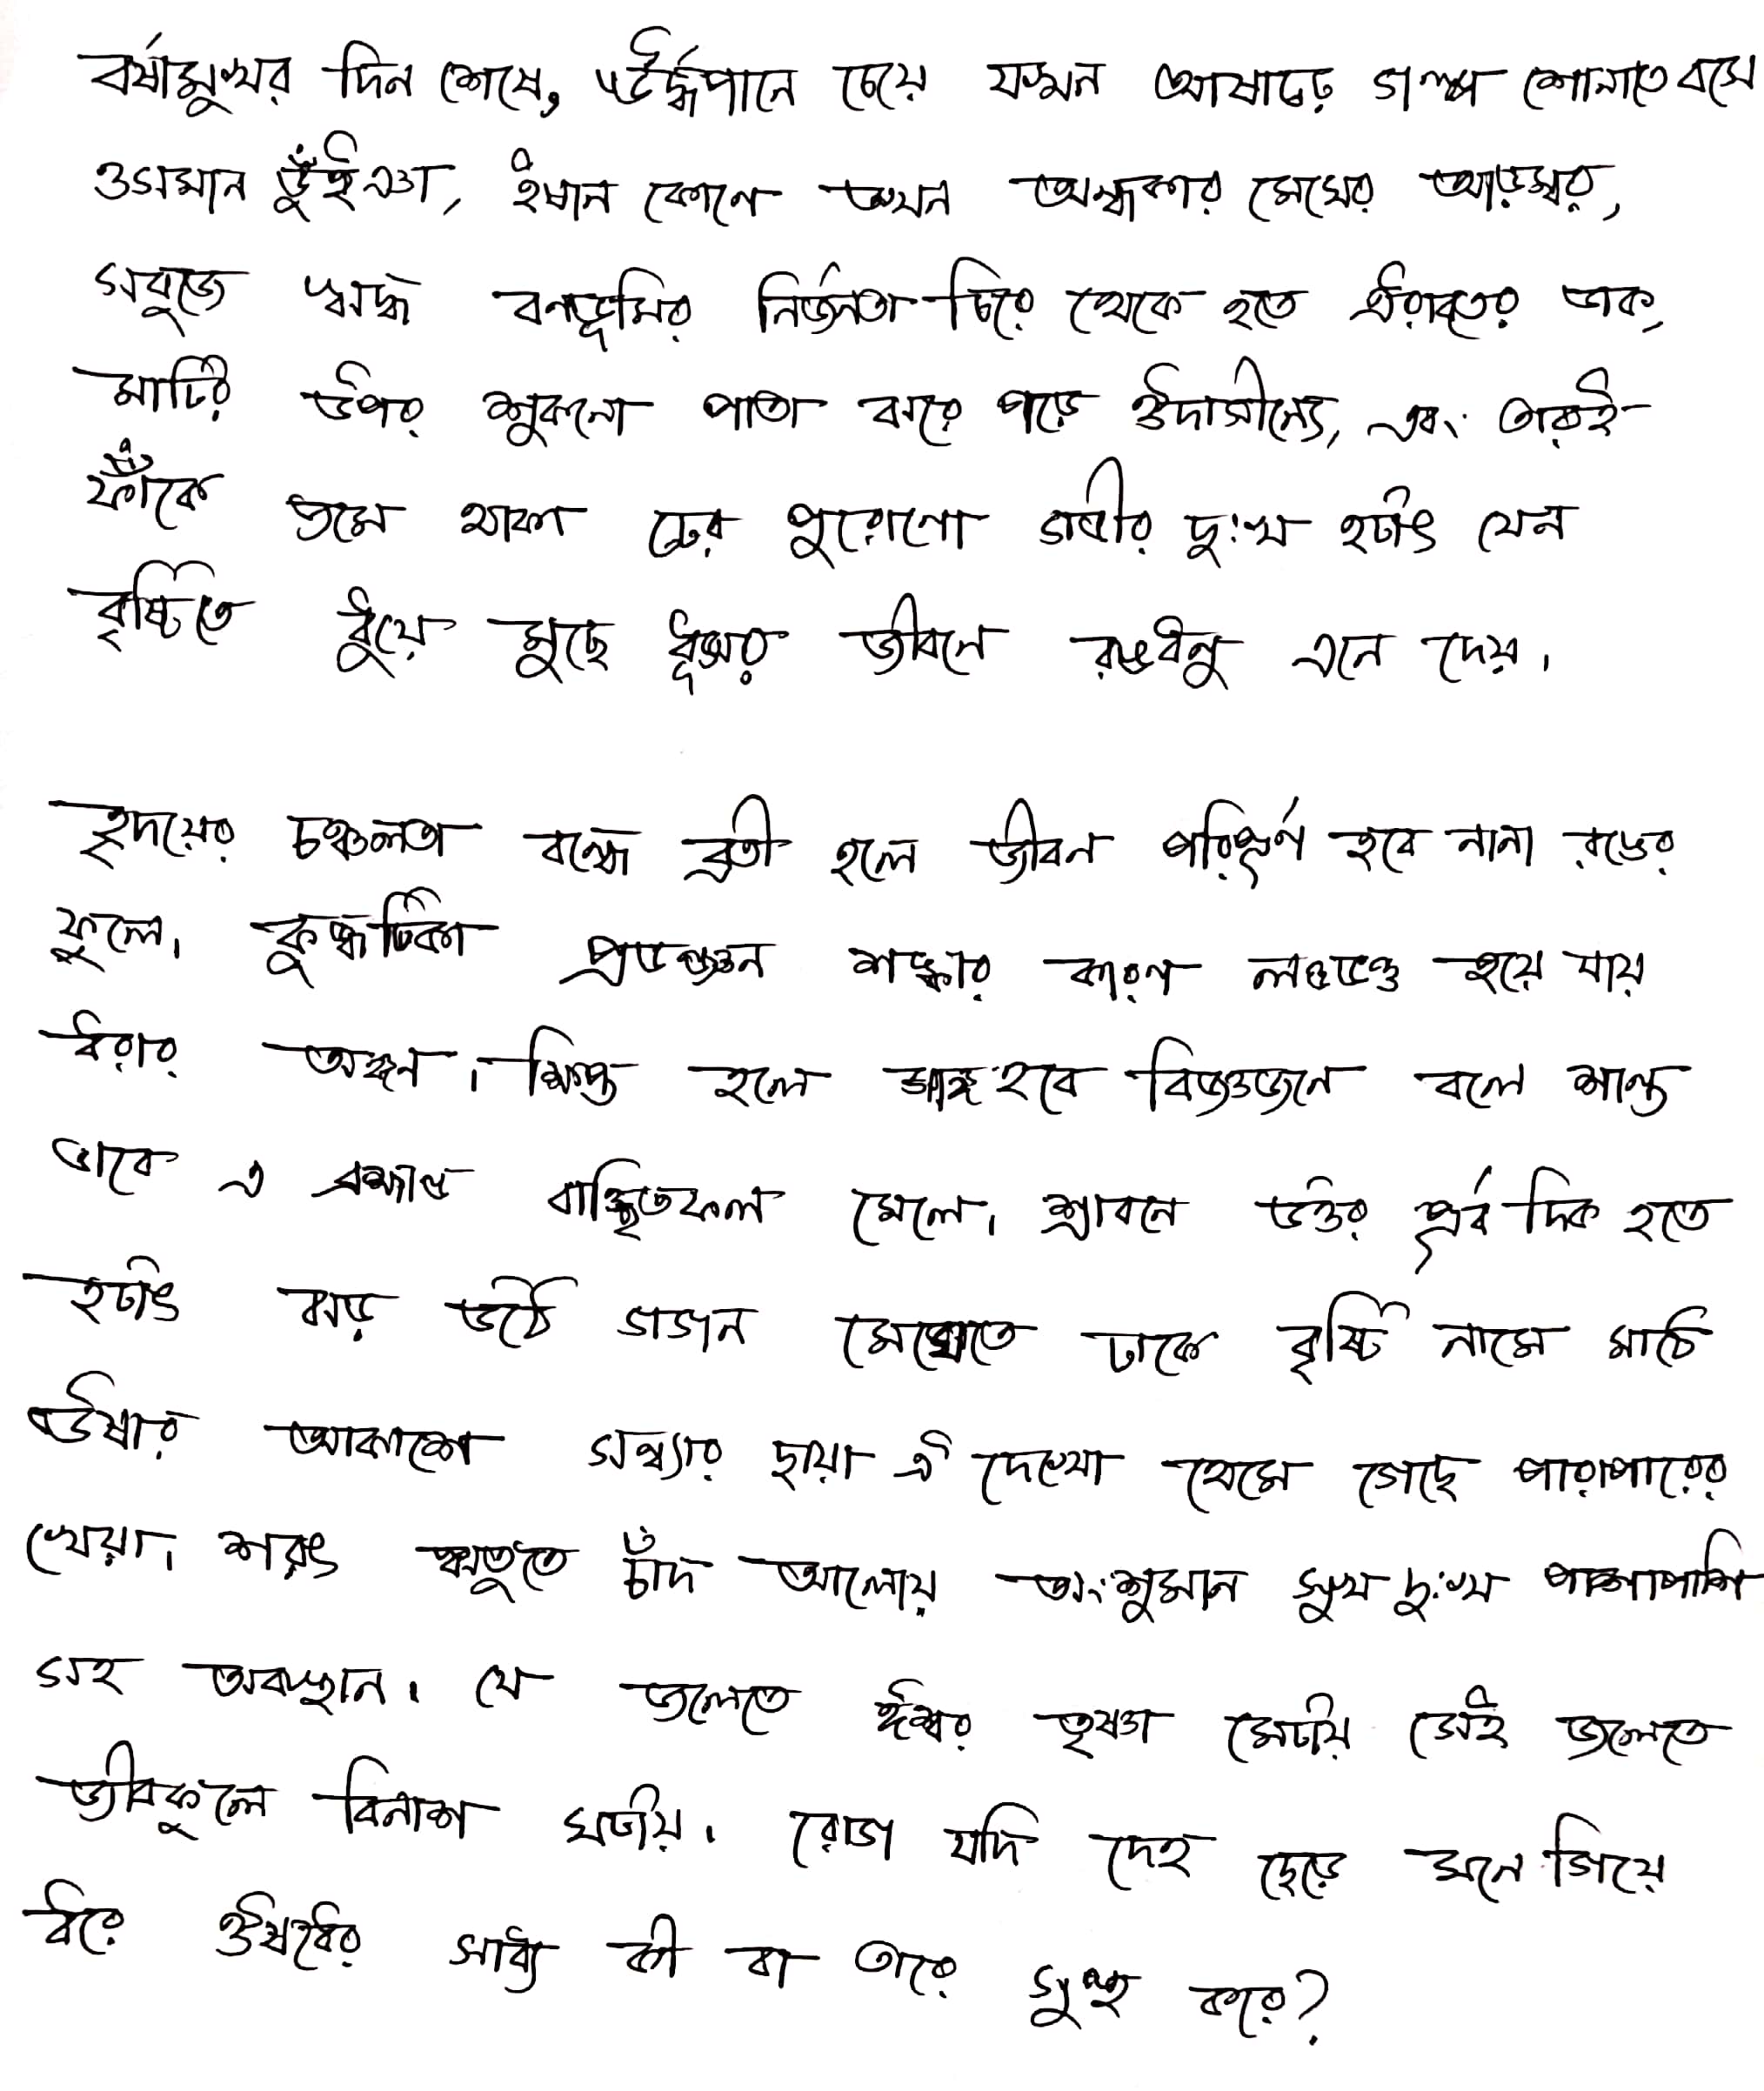 বর্ষামুখর দিন শেষে, ঊর্দ্ধপানে চেয়ে যখন আষাঢ়ে গল্প শোনাতে বসে
ওসমান ভুঁইঞা, ঈষান কোনে তখন অন্ধকার মেঘের আড়ম্বর,
সবুজে ঋদ্ধ বনভূমির নির্জনতা চিরে থেকে হতে ঐরাবতের ডাক,
মাটির উপর শুকনো পাতা ঝরে পড়ে ঔদাসীন্যে, এবং তারই
ফাঁকে জমে থাকা ঢের পুরোনো গভীর দুঃখ হঠাৎ যেন
বৃষ্টিতে ধুয়ে মুছে ধূসর জীবনে রঙধনু এনে দেয়।
হৃদয়ের চঞ্চলতা বন্ধে ব্রতী হলে জীবন পরিপূর্ণ হবে নানা রঙের
ফুলে। কুজ্ঝটিকা প্রভঞ্জন শঙ্কার কারণ লণ্ডভণ্ড হয়ে যায়
ধরার অঙ্গন। ক্ষিপ্ত হলে সাঙ্গ হবে বিজ্ঞজনে বলে শান্ত
ভাবে এ ব্রহ্মাণ্ড বাঞ্ছিতফল মেলে। শ্রাবনে উত্তর পূর্ব দিক হতে
হঠাৎ ঝড় উঠে গগন মেঘেতে ঢাকে বৃষ্টি নামে মাঠে
ঊষার আকাশে সন্ধ্যার ছায়া ঐ দেখো থেমে গেছে পারাপারের
খেয়া। শরৎ ঋতুতে চাঁদ আলোয় অংশুমান সুখ দুঃখ পাশাপাশি
সহ অবস্থান। যে জলেতে ঈশ্বর তৃষ্ণা মেটায় সেই জলেতে
জীবকুলে বিনাশ ঘটায়। রোগ যদি দেহ ছেড়ে মনে গিয়ে
ধরে ঔষধের সাধ্য কী বা তারে সুস্থ করে?